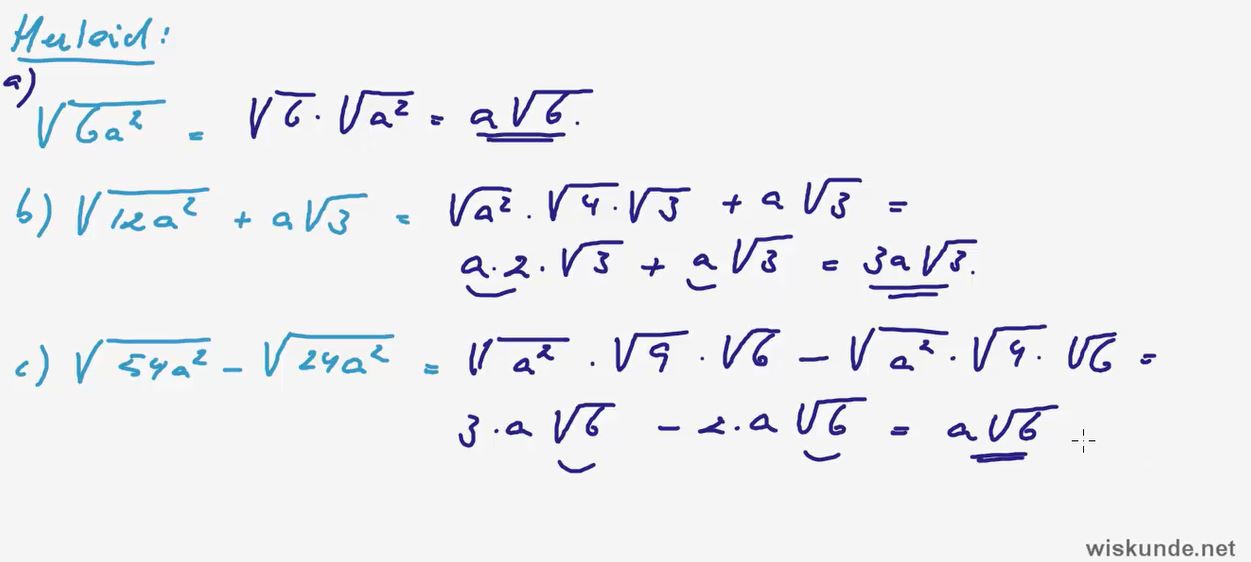 Herleid:
a)
√6a² = √6 · √a² = a√6.
b) √12a² + a√3 = √a² · √4 · √3 + a√3 =
a · 2 · √3 + a√3 = 3a√3.
c) √54a² - √24a² = √a² · √9 · √6 - √a² · √4 · √6 =
3 · a√6 - 2 · a√6 = a√6
wiskunde.net